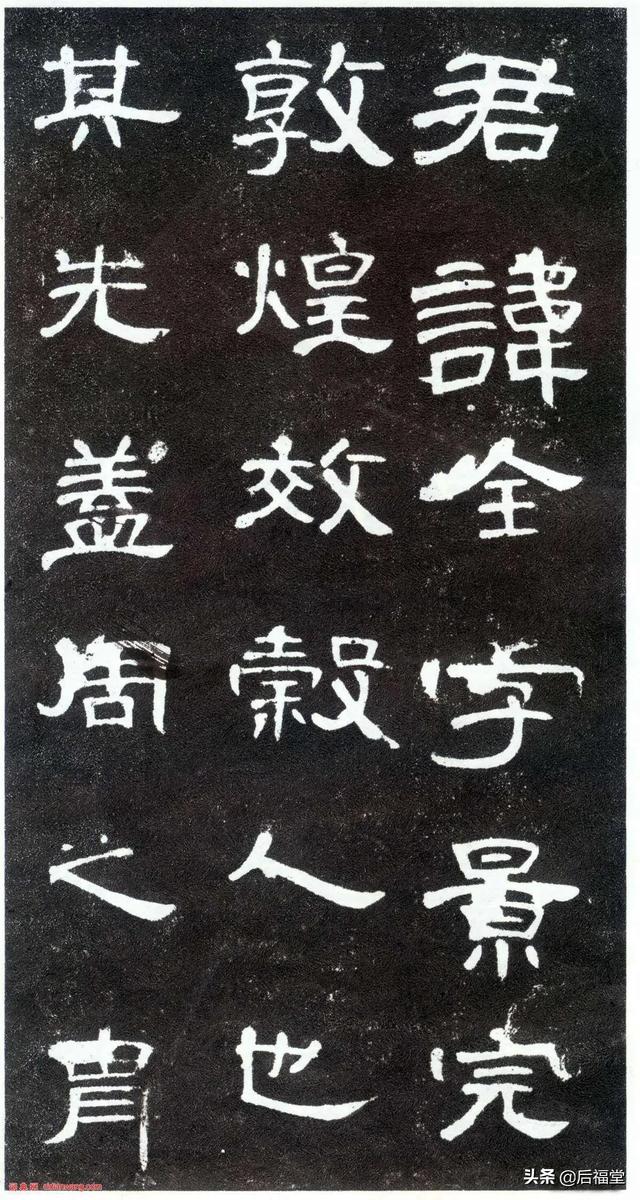 君諱全字景完
敦煌效穀人也
其先蓋周之胄
头条 @后福堂